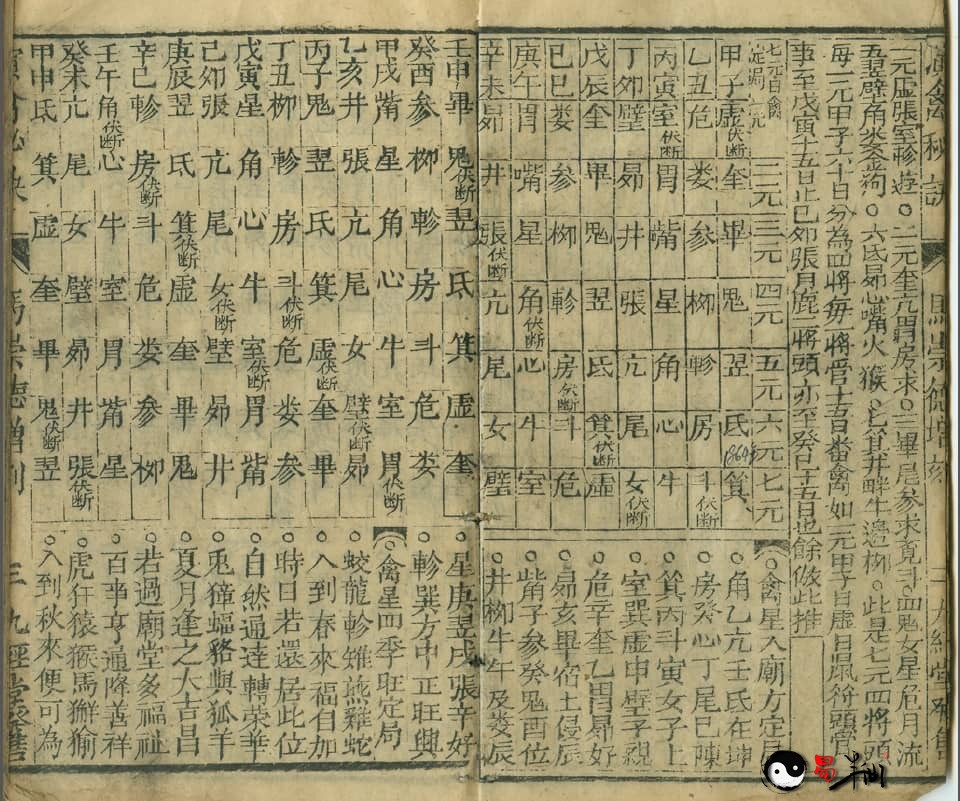 一元虛張室軫遊○二元奎亢胃房求○三畢尾參求竟斗四鬼女星危月流
五翌壁角娄逢狗○六氐昴心嘴火猴○七箕井畔牛邊柳○此是七元四將頭
每一元甲子六十日分為四將每一將管十五日番禽如一元甲子日虛日鼠符頭管
事至戊寅十五日止己卯張月鹿一將頭亦至癸巳十五日也餘倣此推
七元日禽定局 一元 二元 三元 四元 五元 六元 七元
甲子虛伏断 奎 畢 鬼 翌 氐 1864 箕
乙丑危 娄 參 柳 軫 房 斗伏断
丙寅室伏断 胃 嘴 星 角 心 牛
丁卯壁 昴 井 張 亢 尾 女伏断
戊辰奎 畢 鬼 翌 氐 箕伏断 虛
己巳娄 參 柳 軫 房伏断 斗 危
庚午胃 嘴 星 角伏断 心 牛 室
辛未昴 井 張伏断 亢 尾 女 壁
○禽星入廟方定局
○角乙亢壬氐在坤
房癸心丁尾巳陳
○箕丙斗寅女子上
○室巽虛申壁子親
○危辛奎乙胃昴好
○昴亥畢宿土侵辰
○觜子參癸鬼酉位
○井柳牛午及娄辰
壬申畢 鬼伏断 翌 氐 箕 虛 奎
癸酉參 柳 軫 房 斗 危 娄
甲戌觜 星 角 心 牛 室 胃伏断
乙亥井 張 亢 尾 女 壁伏断 昴
丙子鬼 翌 氐 箕 虛伏断 奎 畢
丁丑柳 軫 房 斗伏断 危 娄 參
戊寅星 角 心 牛 室伏断 胃 觜
己卯張 亢 尾 女伏断 壁 昴 井
庚辰翌 氐 箕伏断 虛 奎 畢 鬼
辛巳軫 房伏断 斗 危 娄 參 柳
壬午角伏断 心 牛 室 胃 觜 星
癸未亢 尾 女 壁 昴 井 張伏断
甲申氐 箕 虛 奎 畢 鬼伏断 翌
○星庚翌戌張辛好
○軫巽方中正旺興
○禽星四季旺定局
○蛟龍軫雉燕雞蛇
○入到春來福自加
○時日若還居此位
○自然通達轉榮華
○兎獐蝠貉與狐羊
○夏月逢之大吉昌
○若過廟堂多福祉
○百事亨通降善祥
○虎犴猿猴馬獬㺄
○入到秋來便可為
馬崇德增刻
三九經堂發售
易